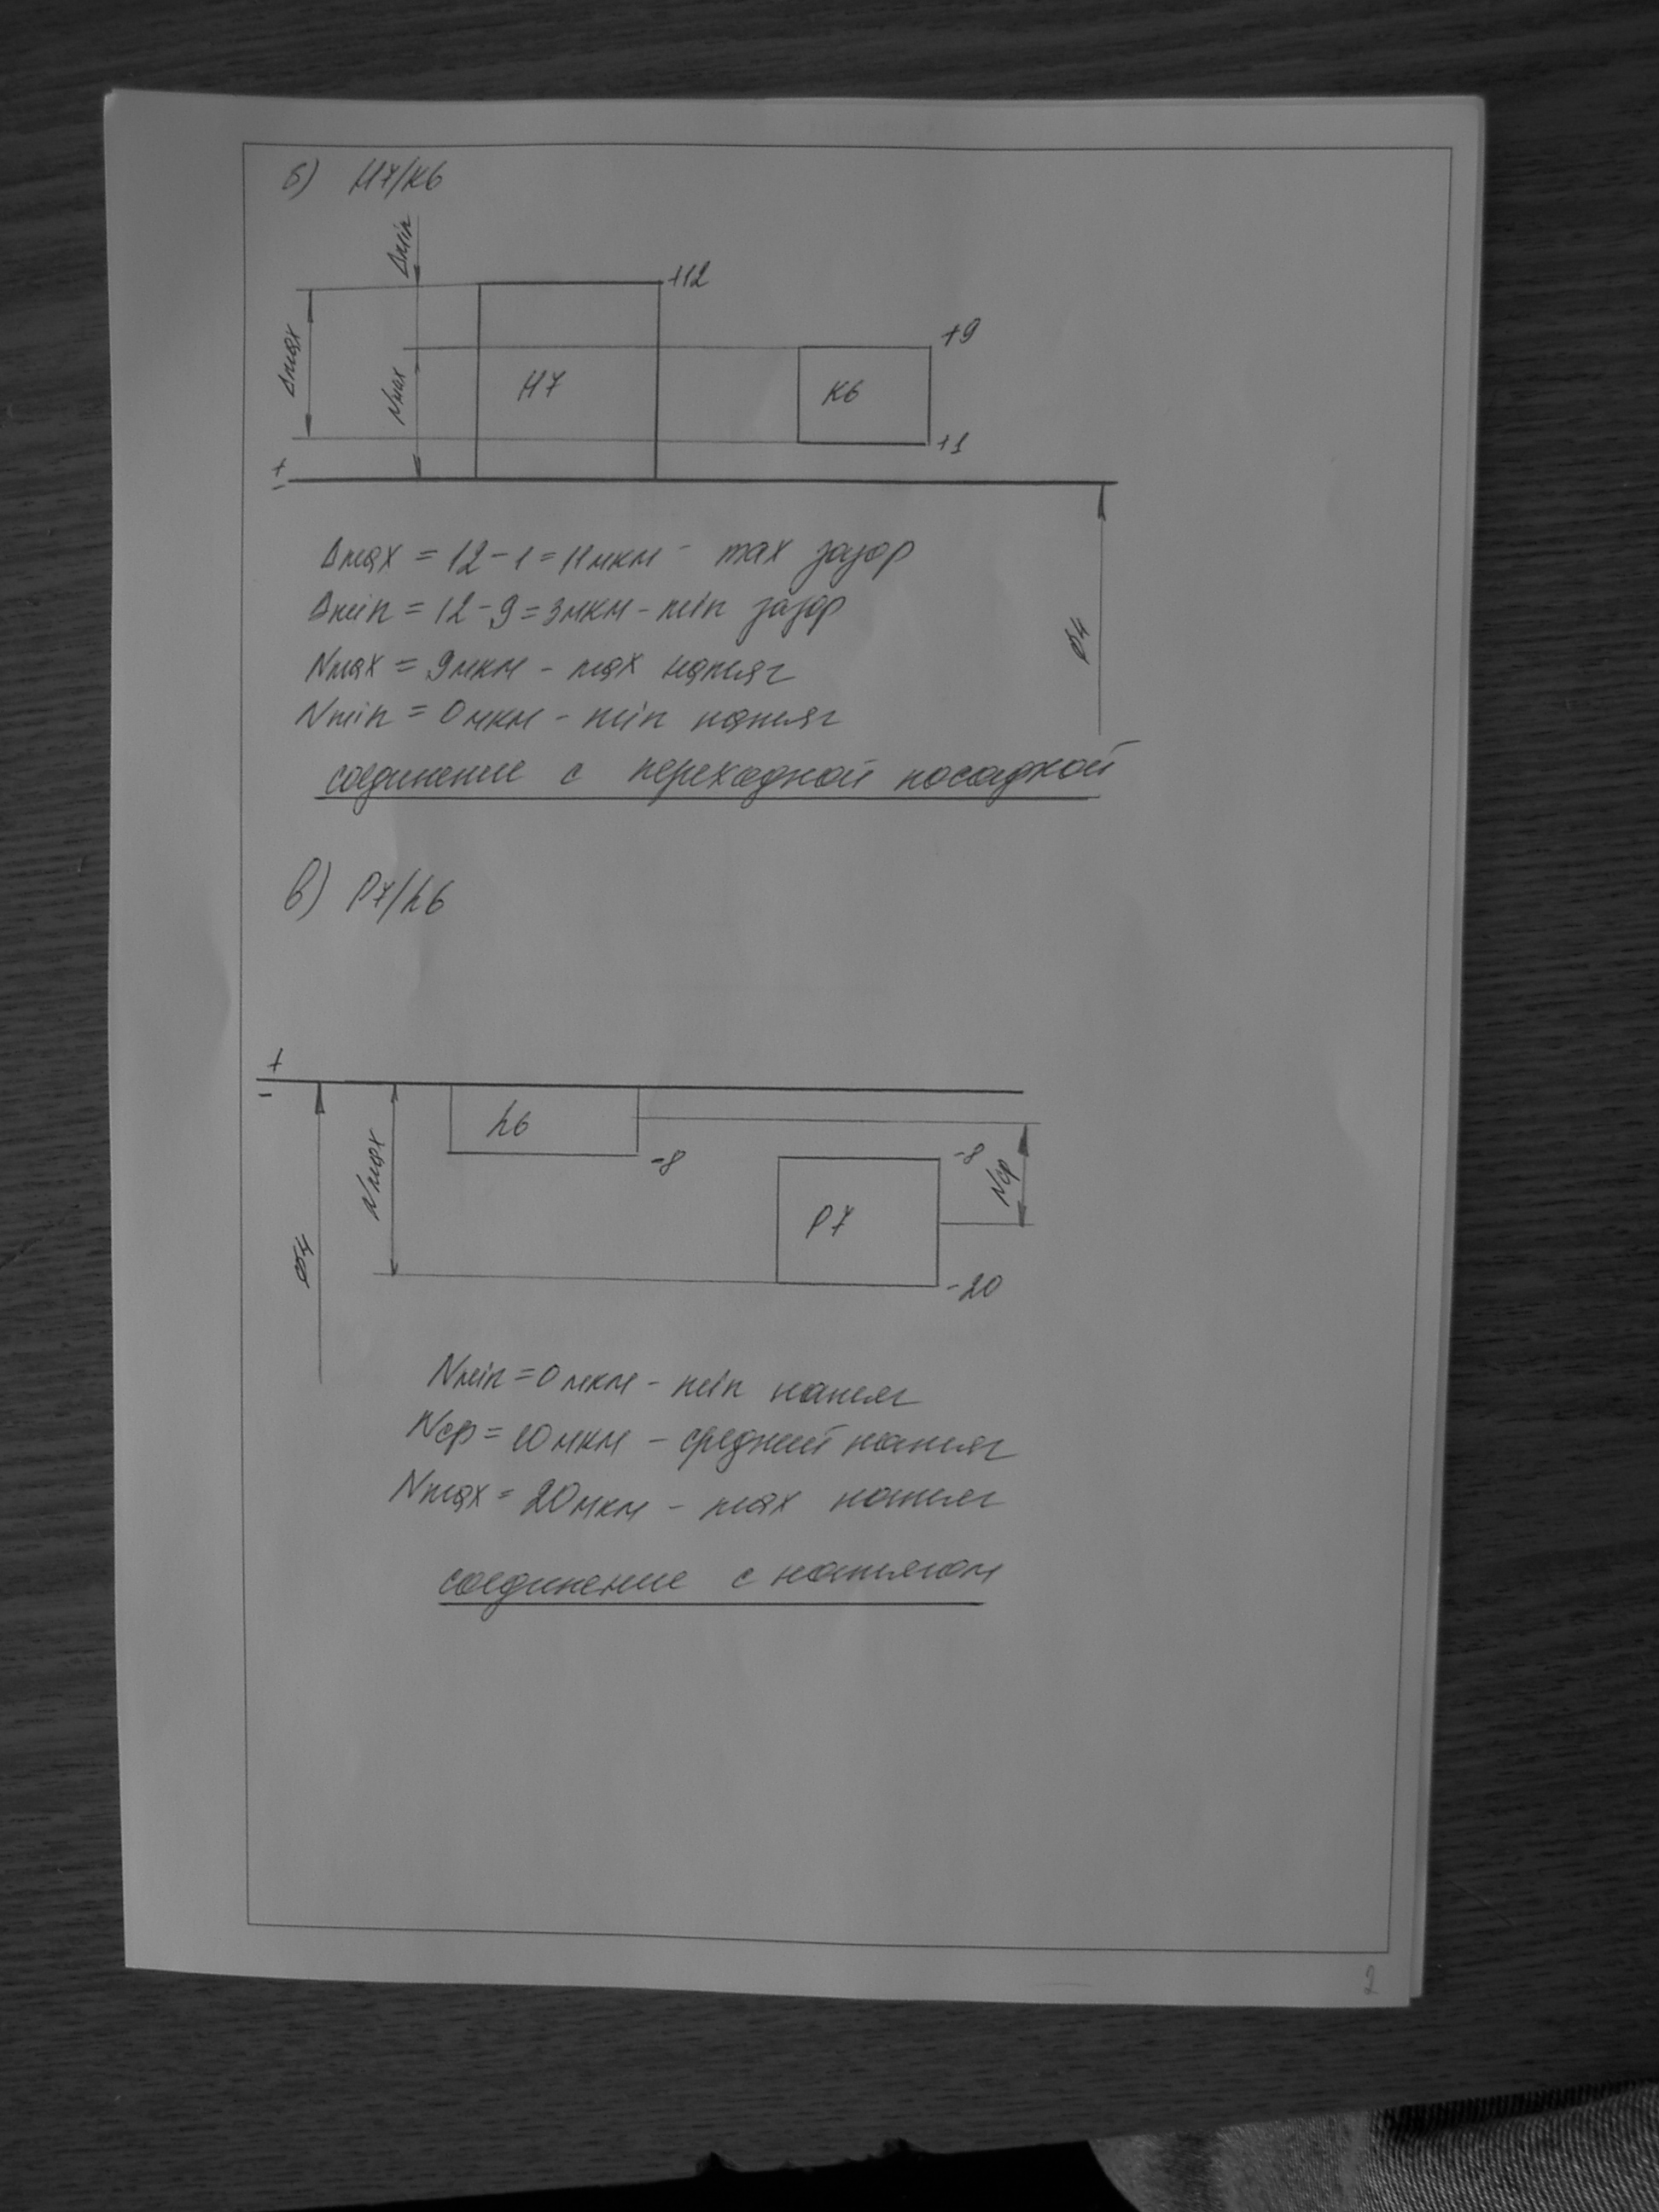 б) H7/K6
Δmin
+12
Δmax
Nmax
H7
K6
+9
+1
+
-
Δmax = 12 - 1 = 11 мкм - max зазор
Δmin = 12 - 9 = 3 мкм - min зазор
Nmax = 9 мкм - max натяг
Nmin = 0 мкм - min натяг
соединение с переходной посадкой
Ø4
в) P7/h6
+
-
h6
-8
Nmax
Ø4
P7
-8
Nср
-20
Nmin = 0 мкм - min натяг
Nср = 10 мкм - средний натяг
Nmax = 20 мкм - max натяг
соединение с натягом
2